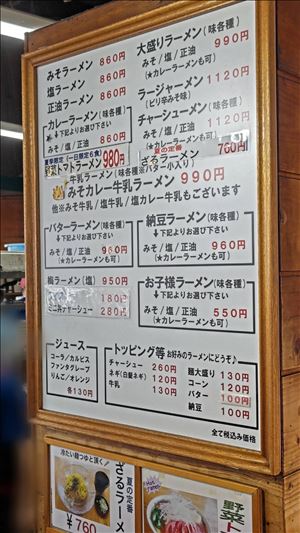 みそラーメン 860円
塩ラーメン 860円
正油ラーメン 860円
カレーラーメン(味各種)
↓下記よりお選び下さい
みそ/塩/正油 860円
夏季限定(一日限定6食)
野菜トマトラーメン 980円
大盛りラーメン(味各種)
みそ/塩/正油 990円
(★カレーラーメンも可)
ラージャーメン 1120円
(ピリ辛みそ味)
チャーシューメン(味各種)
みそ/塩/正油 1120円
(★カレーラーメンも可)
夏の定番
ざるラーメン 760円
牛乳ラーメン(味各種※バターの小入り)
みそカレー牛乳ラーメン 990円
他※みそ牛乳/塩牛乳/正油牛乳もございます
バターラーメン(味各種)
↓下記よりお選び下さい
みそ/塩/正油 960円
(★カレーラーメンも可)
納豆ラーメン(味各種)
↓下記よりお選び下さい
みそ/塩/正油 960円
(★カレーラーメンも可)
梅ラーメン(塩) 950円
180円
ミニ丼チャーシュー 280円
お子様ラーメン(味各種)
↓下記よりお選び下さい
みそ/塩/正油 550円
(★カレーラーメンも可)
ジュース
コーラ/カルピス
ファンタグレープ
りんご/オレンジ
各130円
トッピング等 お好みのラーメンにどうぞ♪
チャーシュー 260円
ネギ(白髪ネギ) 120円
牛乳 130円
麺大盛り 130円
コーン 120円
バター 100円
納豆 100円
全て税込み価格
冷たい麺つゆと頂く
夏の定番
ざるラーメ
¥760
野菜ト